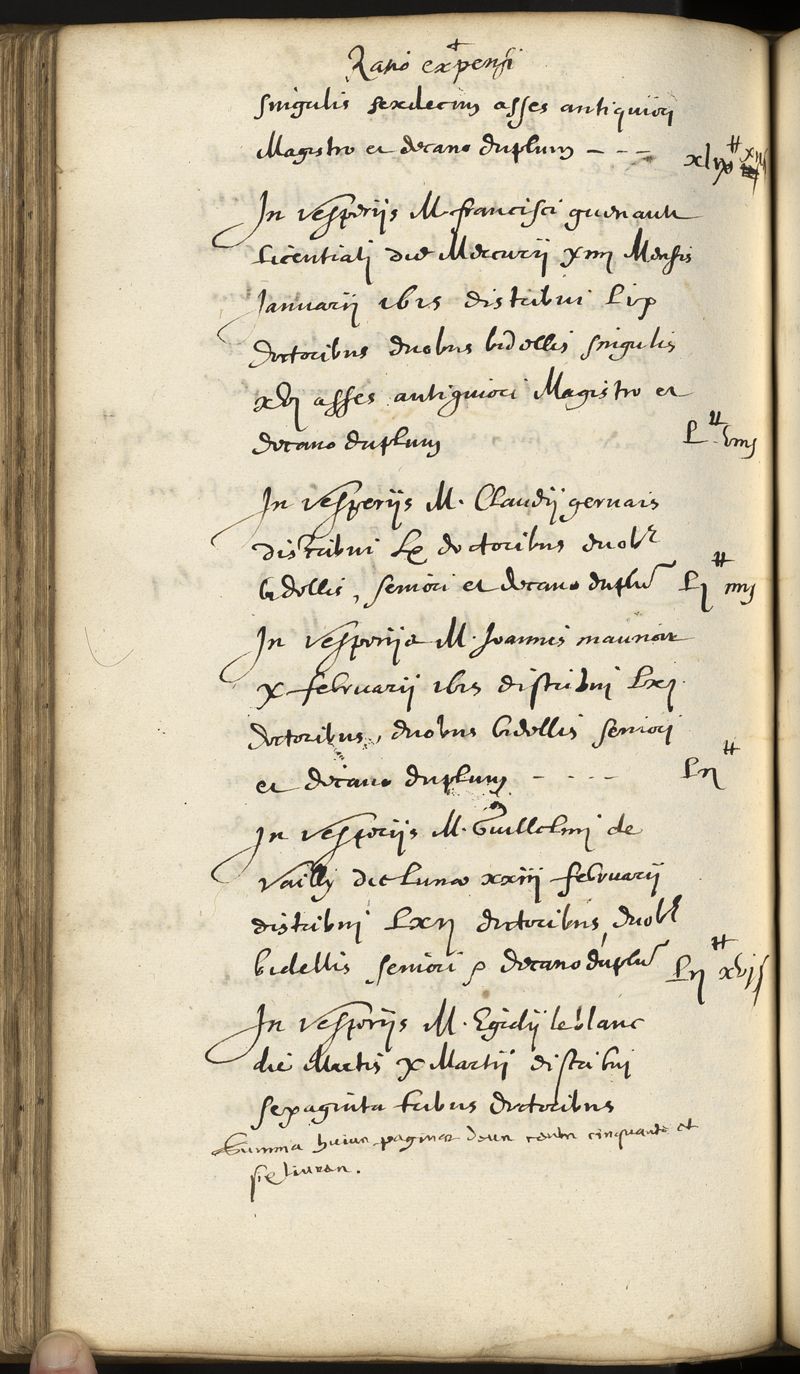 Ratio expensi
singulis sexdecim asses antiquiori
Magistro et decano duplum - - - xlix ₶ xii s
In vesperijs M. francisci guenault
licentiati die Mercurii xiiii Mensis
Januarii 1615 distribui Lix
doctoribus duobus bidellis singulis
xvi asses antiquiori Magistro et
decano duplum L ₶ viii s
In vesperijs M. Claudij gervais
distribui Lx doctoribus duobus
bidellis, seniori et decano duplum Li ₶ iiii s
In vesperijs M. Joannis
x februarii 1615 distribui Lxi
doctoribus, duobus bidellis seniori
et decano duplum - - - - Lii ₶
In vesperijs M. Guillelmi de
Vailly die lunae xxiii februarii
distribui Lxii doctoribus, duobus
bidellis seniori & decano duplum Lii ₶ xvi s
In vesperijs M. Egidij le blanc
die Martis x Martii distribui
sexaginta tribus doctoribus
Summa huius paginae deux centz cinquante et
six livres.